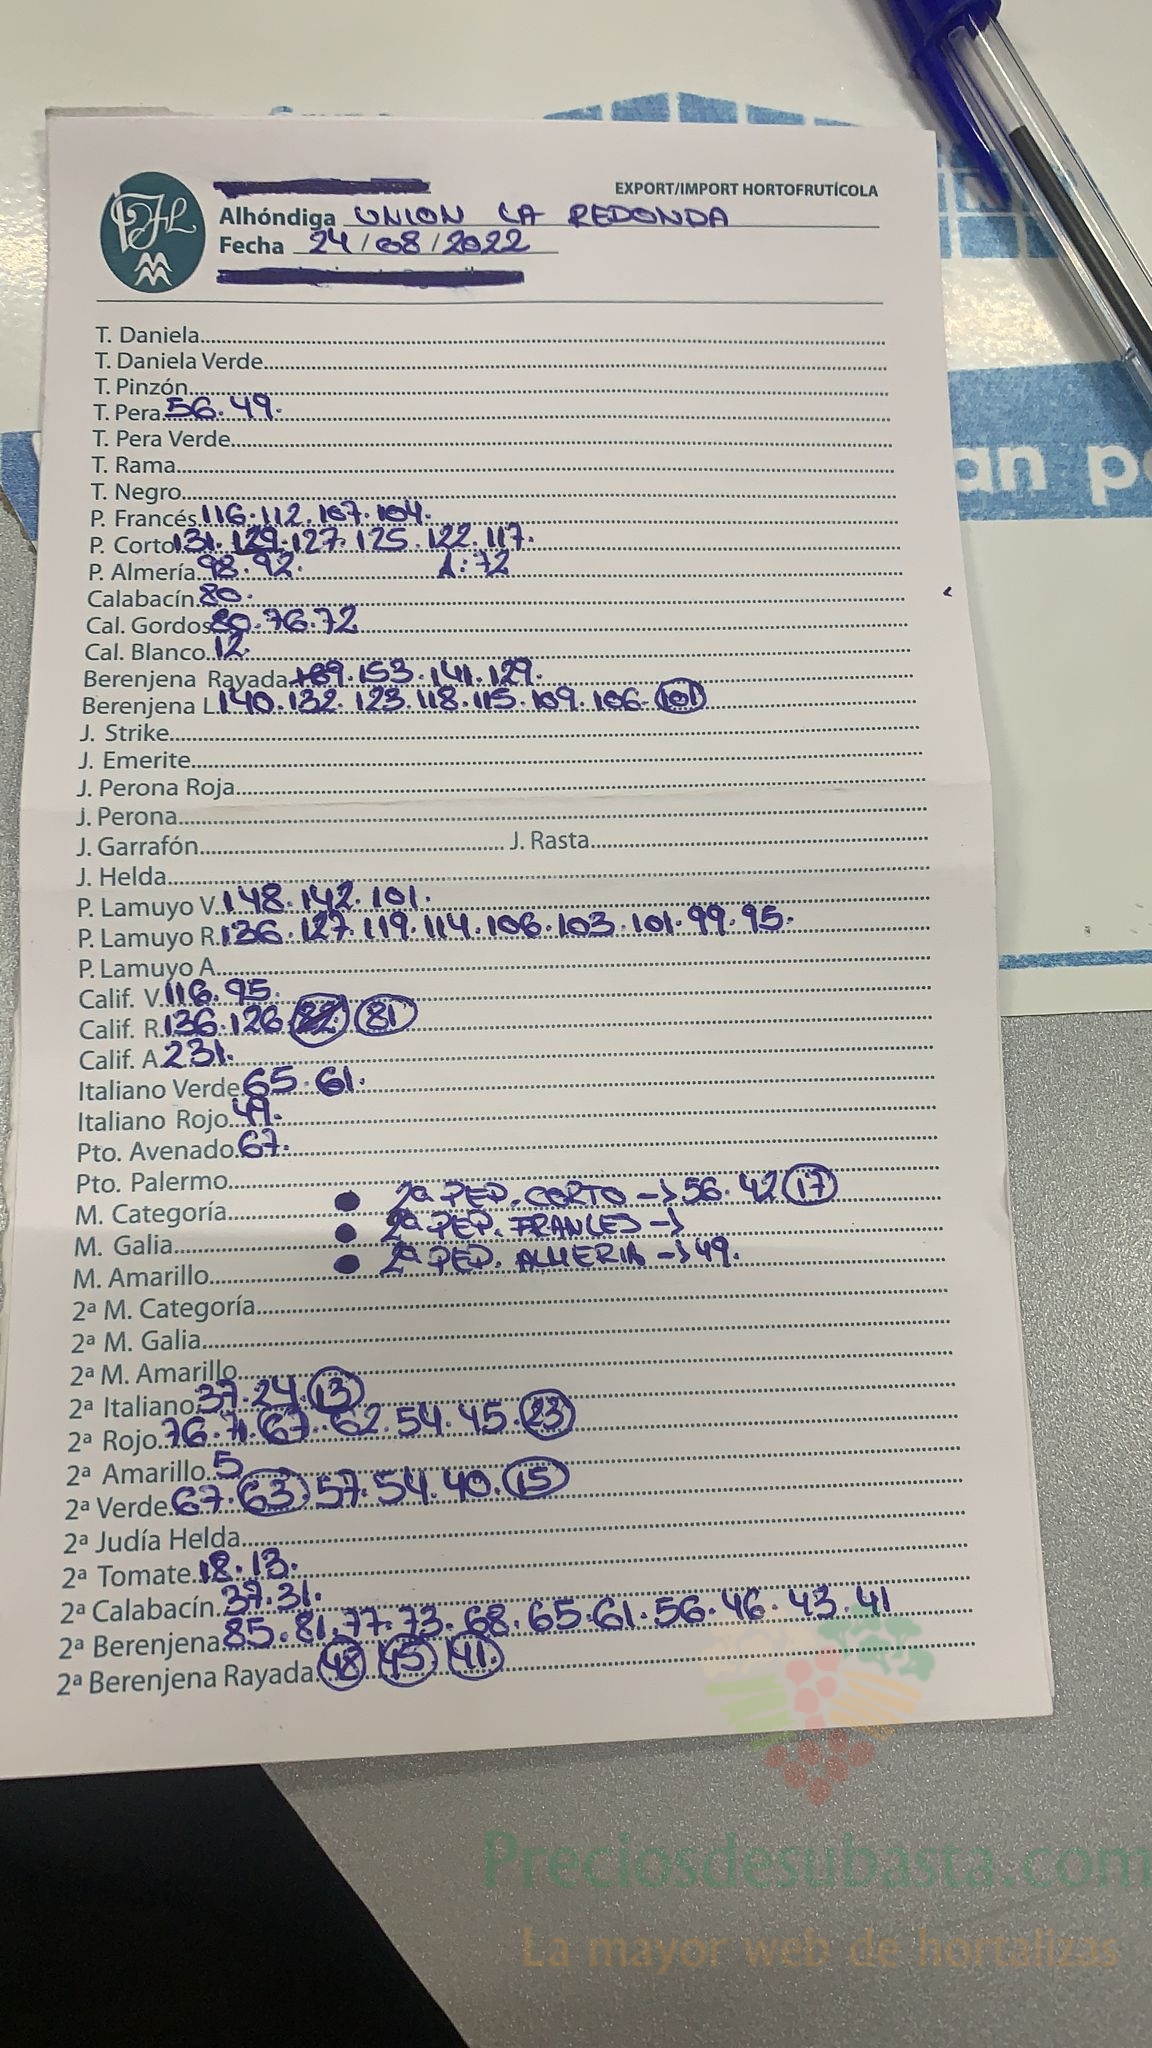 EXPORT/IMPORT HORTOFRUTÍCOLA
Alhóndiga UNION LA REDONDA
Fecha 24/08/2022
T. Daniela
T. Daniela Verde
T. Pinzón
T. Pera 56. 49.
T. Pera Verde
T. Rama
T. Negro
P. Francés 116. 112. 107. 104.
P. Corto 131. 129. 127. 125. 122. 117.
P. Almería 98. 92. 1: 72
Calabacín 80.
Cal. Gordos 80. 76. 72
Cal. Blanco 12.
Berenjena Rayada 169. 153. 141. 129.
Berenjena L 140. 132. 123. 118. 115. 109. 106. 101
J. Strike
J. Emerite
J. Perona Roja
J. Perona
J. Garrafón J. Rasta
J. Helda
P. Lamuyo V. 148. 142. 101.
P. Lamuyo R. 136. 127. 119. 114. 106. 103. 101. 99. 95.
P. Lamuyo A
Calif. V. 116. 95.
Calif. R. 136. 126 81
Calif. A. 231.
Italiano Verde 65. 61.
Italiano Rojo 49.
Pto. Avenado 67.
Pto. Palermo
M. Categoría 2ª PEP. CORTO -> 56. 42 17
M. Galia 2ª PEP. FRANCES ->
M. Amarillo 2ª PEP. ALMERIA -> 49.
2ª M. Categoría
2ª M. Galia
2ª M. Amarillo
2ª Italiano 37. 24. 13
2ª Rojo 76. 71. 67. 62. 54. 45. 23
2ª Amarillo 5
2ª Verde 67. 63 57. 54. 40. 15
2ª Judía Helda
2ª Tomate 18. 13.
2ª Calabacín 37. 31.
2ª Berenjena 85. 81. 77. 73. 68. 65. 61. 56. 46. 43. 41
2ª Berenjena Rayada 48 45 41.
Preciosdesubasta.com
La mayor web de hortalizas